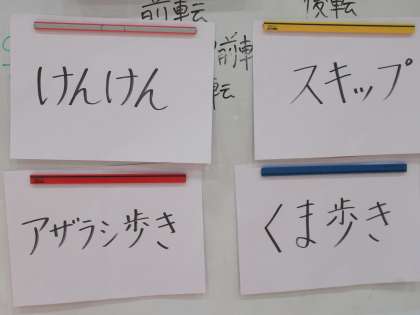 前転
後転
前転
けんけん
スキップ
アザラシ歩き
くま歩き